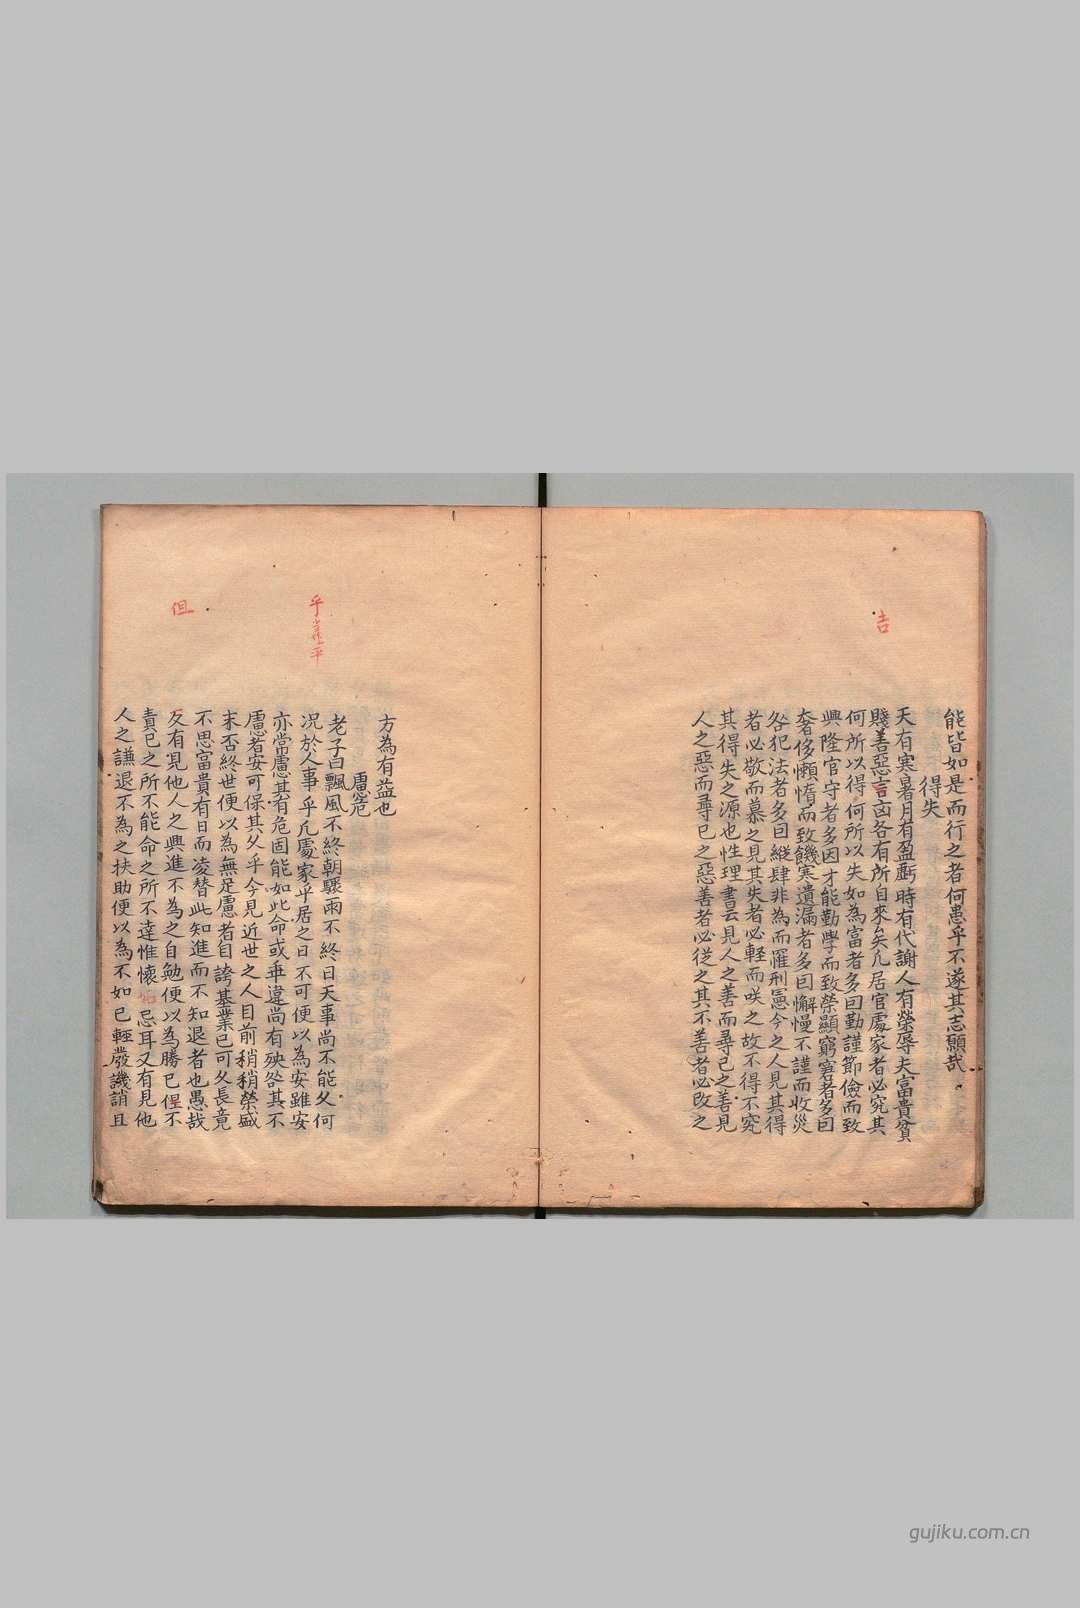 能皆如是而行之者何患乎不遂其志願哉
得失
天有寒暑月有盈虧時有代謝人有榮辱夫富貴貧
賤善惡言凶各有所自來矣凢居官處家者必究其
何所以得何所以失如為富者多因勤謹節儉而致
興隆官守者多因才能勤學而致榮顯窮窘者多因
奢侈懶惰而致饑寒遺漏者多因懈慢不謹而收災
咎犯法者多因縱肆非為而罹刑憲今之人見其得
者必敬而慕之見其失者必輕而咲之故不得不究
其得失之源也性理書云見人之善而尋己之善見
人之惡而尋己之惡善者必從之其不善者必改之
吉
方為有益也
慮危
老子曰飄風不終朝驟雨不終日天事尚不能久何
况於人事乎凢處家乎居之日不可便以為安雖安
亦當慮其有危固能如此命或乖違尚有殃咎其不
慮者安可保其久乎今見近世之人目前稍稍榮盛
末否終世便以為無足慮者自誇基業已可久長竟
不思富貴有日而凌替此知進而不知退者也愚哉
又有見他人之興進不為之自勉便以為勝已但不
責已之所不能命之所不達惟懷忌耳又有見他
人之謙退不為之扶助便以為不如已輕發譏誚且
乎當平
但
gujiku.com.cn